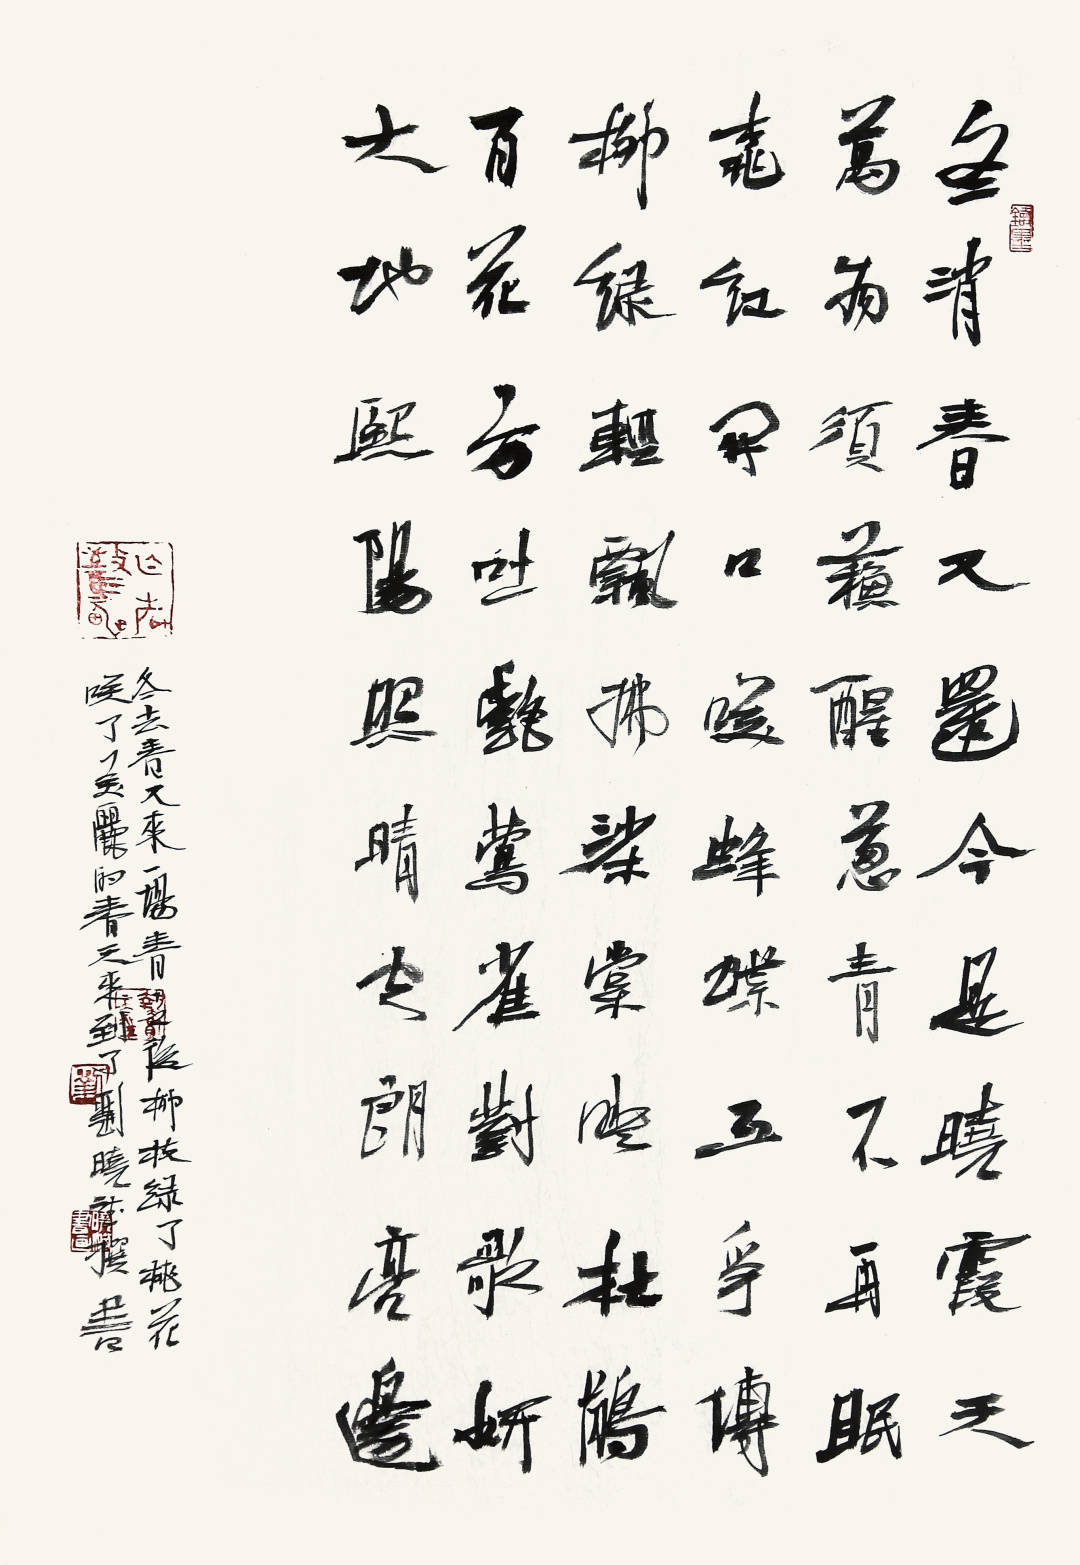 冬消春又還今是曉霞天
萬物須蘇醒蔥青不再眠
桃紅開口笑蜂蝶互爭傳
柳綠輕飄拂梨棠映杜鵑
百花方吐艷鶯雀對歌妍
大地熙陽照晴空朗亮邊
冬去春又來一場春雨後柳枝綠了桃花
笑了美麗的春天來到了劉曉撰書